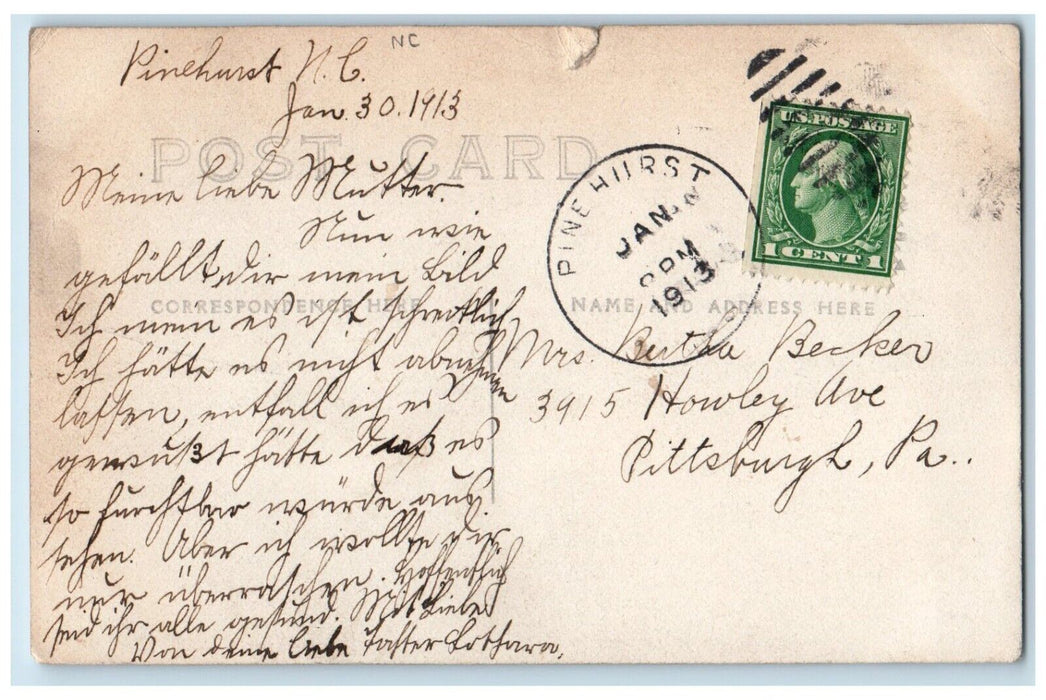 Pinehurst N.C.
NC
Jan 30. 1913
POST CARD
Meine liebe Mutter.
Nun wie
gefällt dir mein Bild
Ich mein es ist schrecklich
Ich hätte es nicht abnehmen
lassen, entfall ich es
gewußt hätte daß es
so furchtbar würde aus
sehen. Aber ich wollte dir
nur überraschen. Hoffentlich
seid ihr alle gesund. Mit Liebe
Von deine liebe
CORRESPONDENCE HERE
NAME AND ADDRESS HERE
PINEHURST
JAN
PM
1913
U.S. POSTAGE
1 CENT 1
Mrs. Becker
3915 Howley Ave
Pittsburgh, Pa..